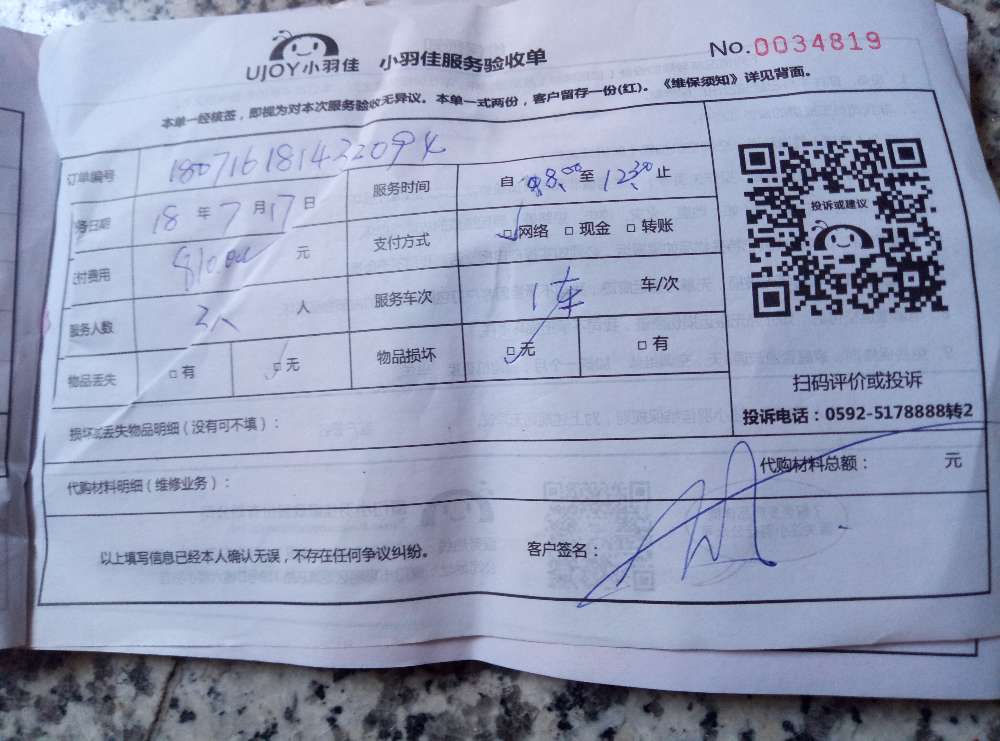 UJOY小羽佳 小羽佳服务验收单 No.0034819
本单一经核签，即视为对本次服务验收无异议。本单一式两份，客户留存一份(红)。《维保须知》详见背面。
订单编号 180716181422094
服务时间 自 08:00 至 12:30 止
务日期 18 年 7 月 17 日
支付方式 □网络 □现金 □转账
付费用 810.00 元
服务人数 2人 人
服务车次 1车 车/次
物品丢失 □有 □无 物品损坏 □无 □有
投诉或建议
扫码评价或投诉
投诉电话：0592-5178888转2
损坏或丢失物品明细（没有可不填）：
代购材料明细（维修业务）： 代购材料总额： 元
以上填写信息已经本人确认无误，不存在任何争议纠纷。 客户签名：